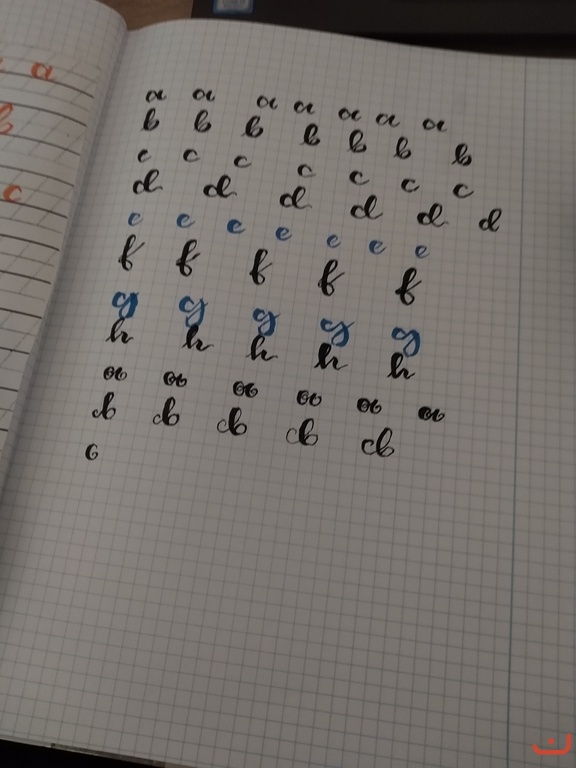 a
b
c
a a a a a a a
b b b b b b b
c c c c c c c
d d d d d d
e e e e e e e
f f f f f
g g g g g
h h h h h